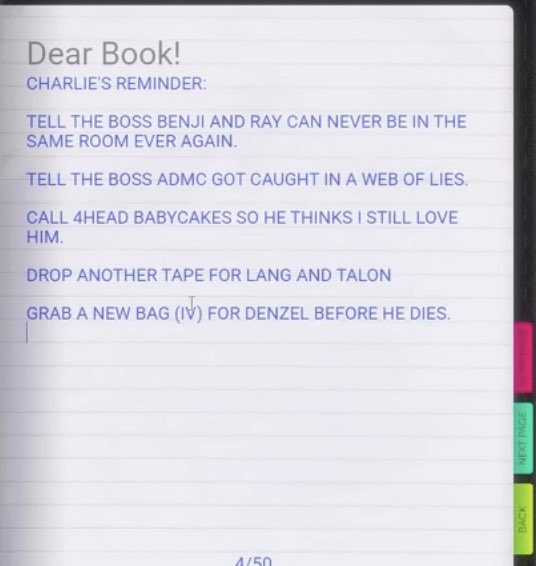 Dear Book!
CHARLIE'S REMINDER:
TELL THE BOSS BENJI AND RAY CAN NEVER BE IN THE
SAME ROOM EVER AGAIN.
TELL THE BOSS ADMC GOT CAUGHT IN A WEB OF LIES.
CALL 4HEAD BABYCAKES SO HE THINKS I STILL LOVE
HIM.
DROP ANOTHER TAPE FOR LANG AND TALON
GRAB A NEW BAG (IV) FOR DENZEL BEFORE HE DIES.
NEXT PAGE
BACK
4/50